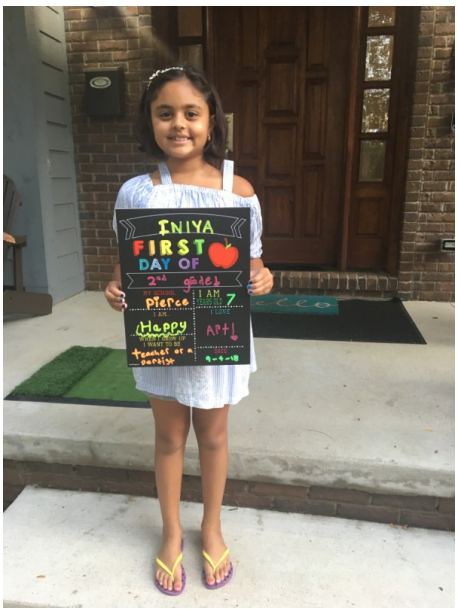 INIYA
FIRST
DAY OF
2nd grade!
MY SCHOOL
Pierce
I AM
YEARS OLD 7
I AM...
Happy
I LOVE
Art!
WHEN I GROW UP
I WANT TO BE
teacher or a
dentist
DATE
9-4-18
hello